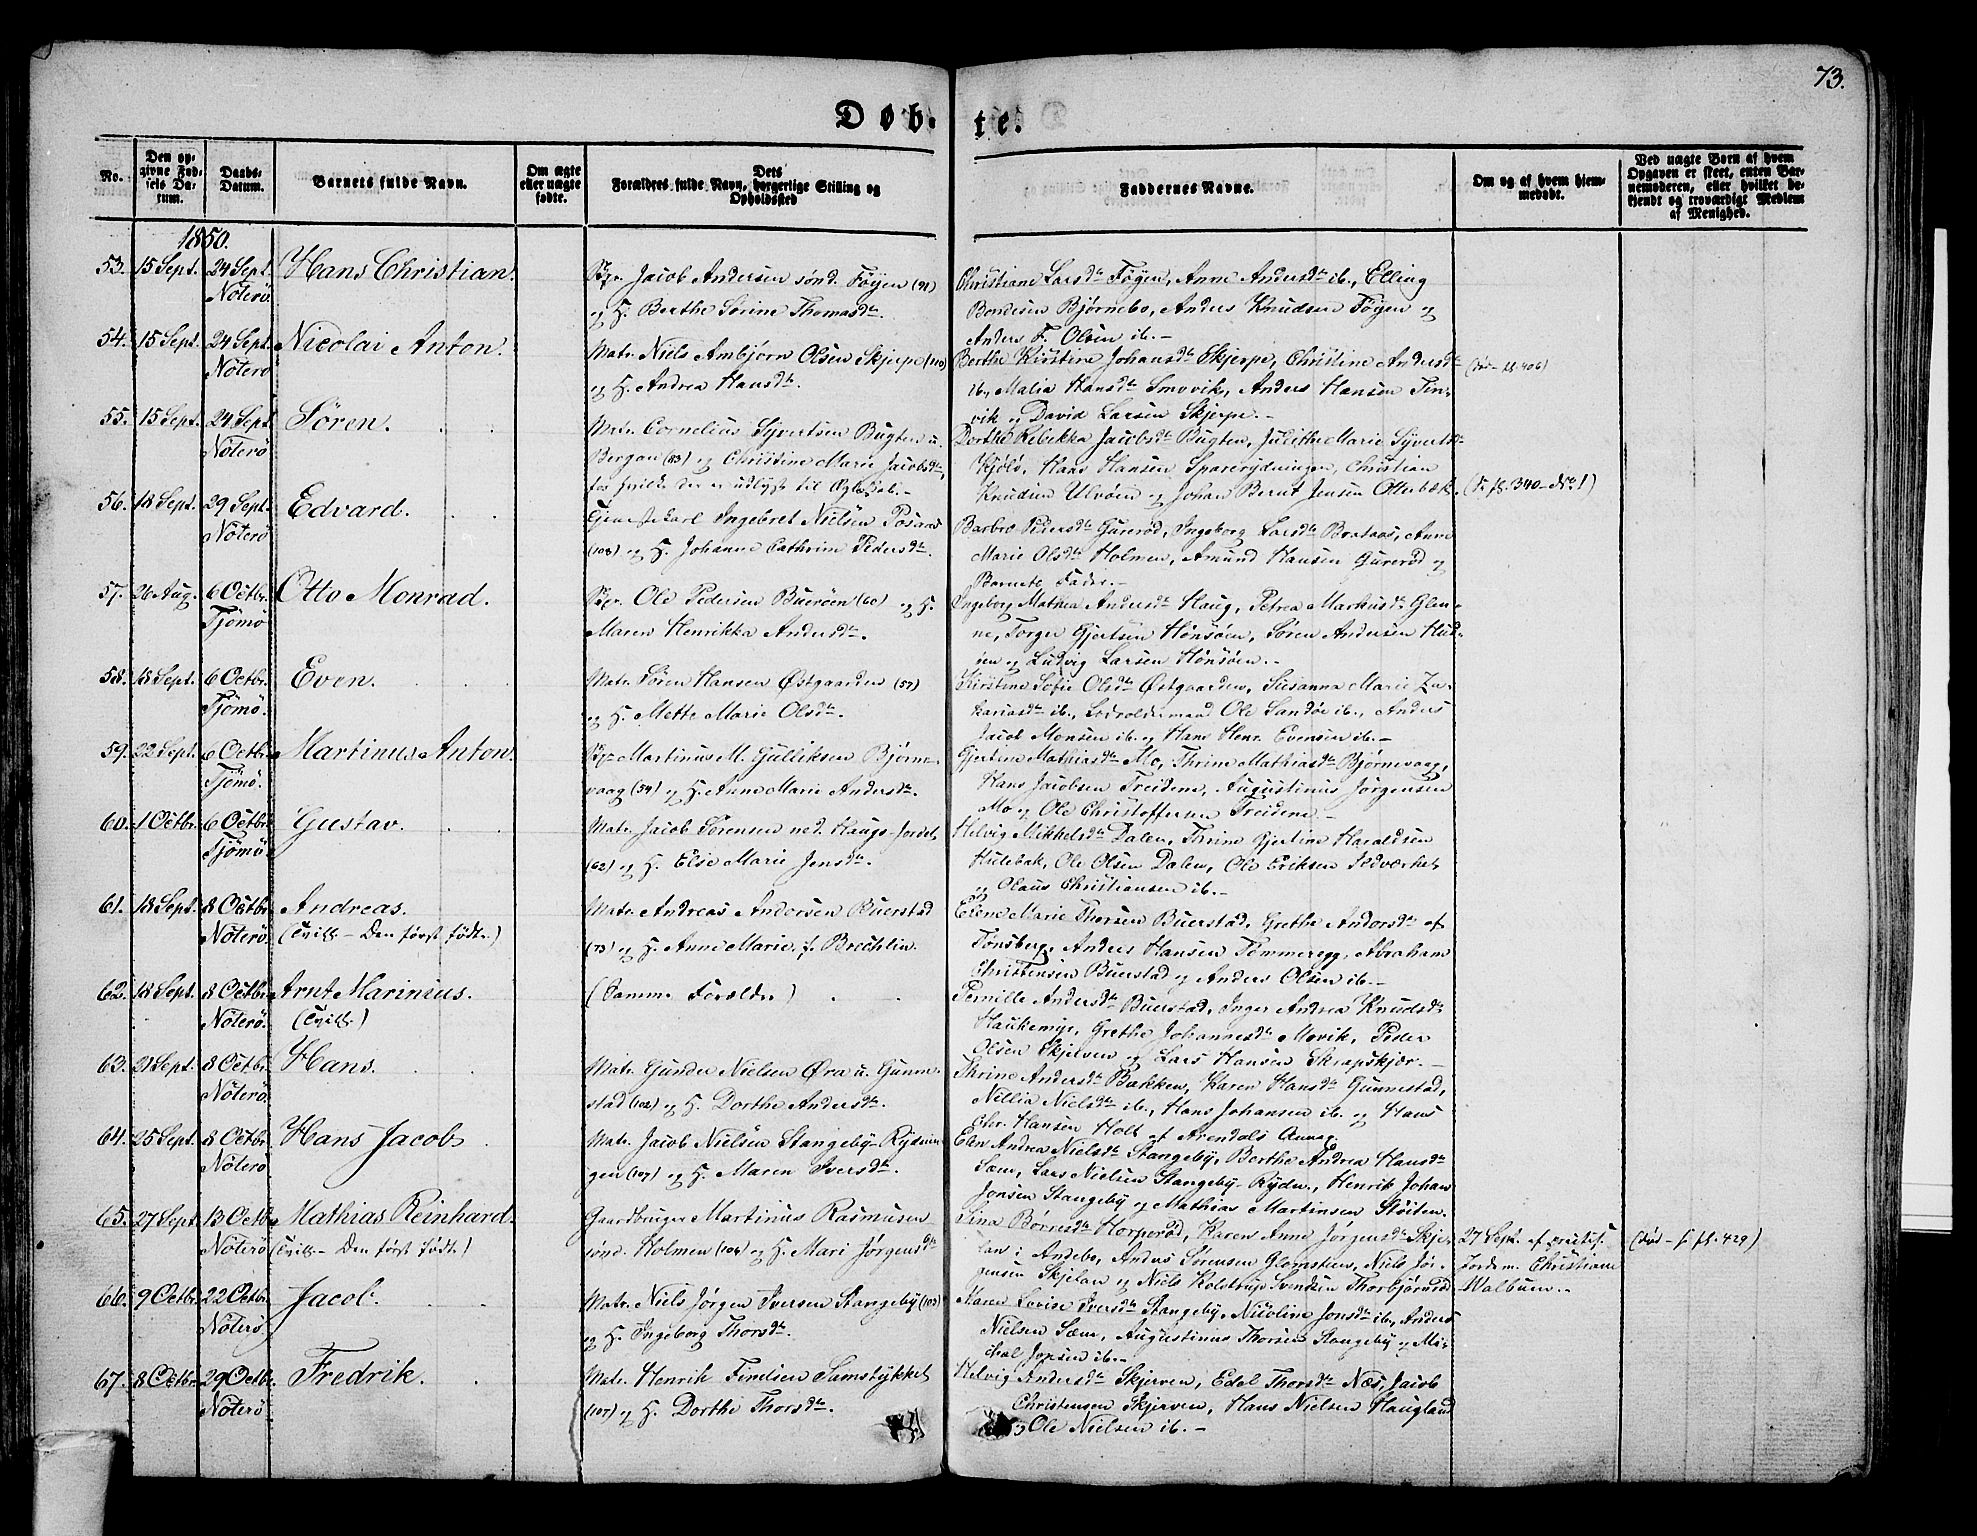 73.
Døb- te.
No.
Den opgivne Fødsels Datum.
Daabs-Datum.
Barnets fulde Navn.
Om ægte eller uægte fødte.
Dets Forældres fulde Navn, borgerlige Stilling og Opholdssted
Faddernes Navne.
Om og af hvem hjemmedøbt.
Ved uægte Børn af hvem Opgaven er skeet, enten Barnemoderen, eller hvilket bekjendt og troværdigt Medlem af Menighed.
1850.
53. 15 Sept. 24 Sept. Nøterø. Hans Christian.
Jacob Andersen sønd. Føyen (91)
og H. Berthe Sørine Thomasdtr.
Christiane Larsdtr Føyen, Anne Andersdtr ib., Elling
Bordesen Bjørnebo, Anders Knudsen Føyen og
Anders F. Olsen ib.-
54. 15 Sept. 24 Sept. Nøterø Nicolai Anton.
Matr. Niels Ambjørn Olsen Skjerpe (110)
og H. Andrea Hansdtr.
Berthe Kirstine Johansdtr Skjerpe, Christine Andersdtr
ib., Malia Hansdtr Smovik, Anders Hansen Tin-
vik og David Larsen Skjerpe.-
(død - fl. 406)
55. 15 Sept. 24 Sept. Nøterø Søren.
Matr. Cornelius Syvertsen Bugten u.
Bergan (83) og Christine Marie Jacobsdtr,
for hvilke der er udlyst til Ægteskab.-
Dorthe Rebekka Jacobsdtr Bugten, Julithe Marie Syvertsdtr
Kjøle, Hans Hansen Sparerydningen, Christian
Knudsen Ulvøen og Johan Bernt Jensen Otterbæk.
(S. fl. 340 - No. 1)
56. 18 Sept. 29 Sept. Nøterø Edvard.
Tjenestekarl Ingebret Nielsen Posaas
(108) og H. Johanne Cathrine Pedersdtr.
Barbro Pedersdtr Gurerød, Ingeborg Larsdtr Brataas, Anne
Marie Olsdtr Holmen, Amund Hansen Gurerød og
Barnets Fader.-
57. 26 Aug. 6 Octbr. Tjømø Otto Monrad.
Ole Pedersen Buerøen (60) og H.
Maren Henrikka Andersdtr.
Ingeborg Mathea Andersdtr Haug, Petrea Markusdtr Glen-
ne, Torger Gjertsen Hønsøen, Søren Andersen Hud-
øen og Ludvig Larsen Hønsøen.-
58. 18 Sept. 6 Octbr. Tjømø. Even.
Matr. Søren Hansen Østgaarden (57)
og H. Mette Marie Olsdtr.
Kirstine Sofie Olsdtr Østgaarden, Susanna Marie Za-
kariasdtr ib., Lodsoldermand Ole Sandøe ib., Anders
Jacob Monsen ib. og Hans Henr. Evensen ib.-
59. 22 Sept. 6 Octbr. Tjømø. Martinus Anton.
Martinus M. Gulliksen Bjørne-
vaag (54) og H. Anne Marie Andersdtr.
Gjertine Mathiasdtr Mo, Thrine Mathiasdtr Bjørnevaag,
Hans Jacobsen Treidene, Augustinus Jørgensen
Mo og Ole Christoffersen Treidene.-
60. 1 Octbr. 6 Octbr. Tjømø. Gustav.
Matr. Jacob Sørensen ned. Haugs-Jordet
(62) og H. Else Marie Jensdtr.
Helvig Mikkelsdtr Dalen, Thrine Gjertine Haraldsen
Hulebak, Ole Olsen Dalen, Ole Eriksen Sidværket
og Olaus Christiansen ib.-
61. 18 Sept. 8 Octbr. Nøterø. Andreas.
(Tvill.- Den først fødte.)
Matr. Andreas Andersen Buerstad
(73) og H. Anne Marie f. Brechlin.
Elene Marie Thorsen Buerstad, Grethe Andorsdtr af
Tønsberg, Anders Hansen Tømmeregg, Abraham
Christensen Buerstad og Anders Olsen ib.-
62. 18 Sept. 8 Octbr. Nøterø. Arnt Marinius.
(Tvill.)
(Samme Forældre)
Pernille Andersdtr Buerstad, Inger Andrea Knudsdtr
Haukemyr, Grethe Johannesdtr Movik, Peder
Olsen Skjerven og Lars Hansen Skrapskjær.-
63. 21 Sept. 8 Octbr. Nøterø. Hans.
Matr. Gunder Nielsen Øra u. Gunne-
stad (102) og H. Dorthe Andersdtr.
Thrine Andersdtr Bakken, Karen Hansdtr Gunnestad,
Nillia Nielsdtr ib., Hans Johansen ib. og Hans
Chr. Hansen Holt af Arendals Annex.
64. 25 Sept. 8 Octbr. Nøterø Hans Jacob.
Matr. Jacob Nielsen Stangeby-Rydnin-
gen (107) og H. Maren Iversdtr.
Elen Andrea Nielsdtr Stangeby, Berthe Andrea Hansdtr
Sæm, Lars Nielsen Stangeby-Rydn., Henrik Johan
Jonsen Stangeby og Mathias Martinsen Støiten.
65. 27 Sept. 13 Octbr. Nøterø Mathias Reinhard.
(Tvill.- Den først fødte.)
Gaardbruger Martinus Rasmusen
sønd. Holmen (104) og H. Mari Jørgensdtr
Sina Børresdtr Horperød, Karen Anne Jørgensdtr Skje-
lan i Andebo, Anders Sørensen Glomstien, Niels Jør-
gensen Skjelan og Niels Kolstrup Svendsen Thorbjørnrød
27 Sept. af practis.
Jordem. Christiane
Walbum.-
(død - s. fl. 429)
66. 9 Octbr. 22 Octbr. Nøterø Jacob.
Matr. Niels Jørgen Iversen Stangeby (103)
og H. Ingeborg Thorsdtr.
Karen Lovise Iversdtr Stangeby, Nicoline Jonsdtr ib., Anders
Nielsen Sæm, Augustinus Thorsen Stangeby og Mi-
chal Jonsen ib.-
67. 8 Octbr. 29 Octbr. Nøterø Fredrik.
Matr. Henrik Finelsen Samstykket
(107) og H. Dorthe Thorsdtr.
Helvig Andersdtr Skjerven, Edel Thorsdtr Næs, Jacob
Christensen Skjerven, Hans Nielsen Haugland
og Ole Nielsen ib.-